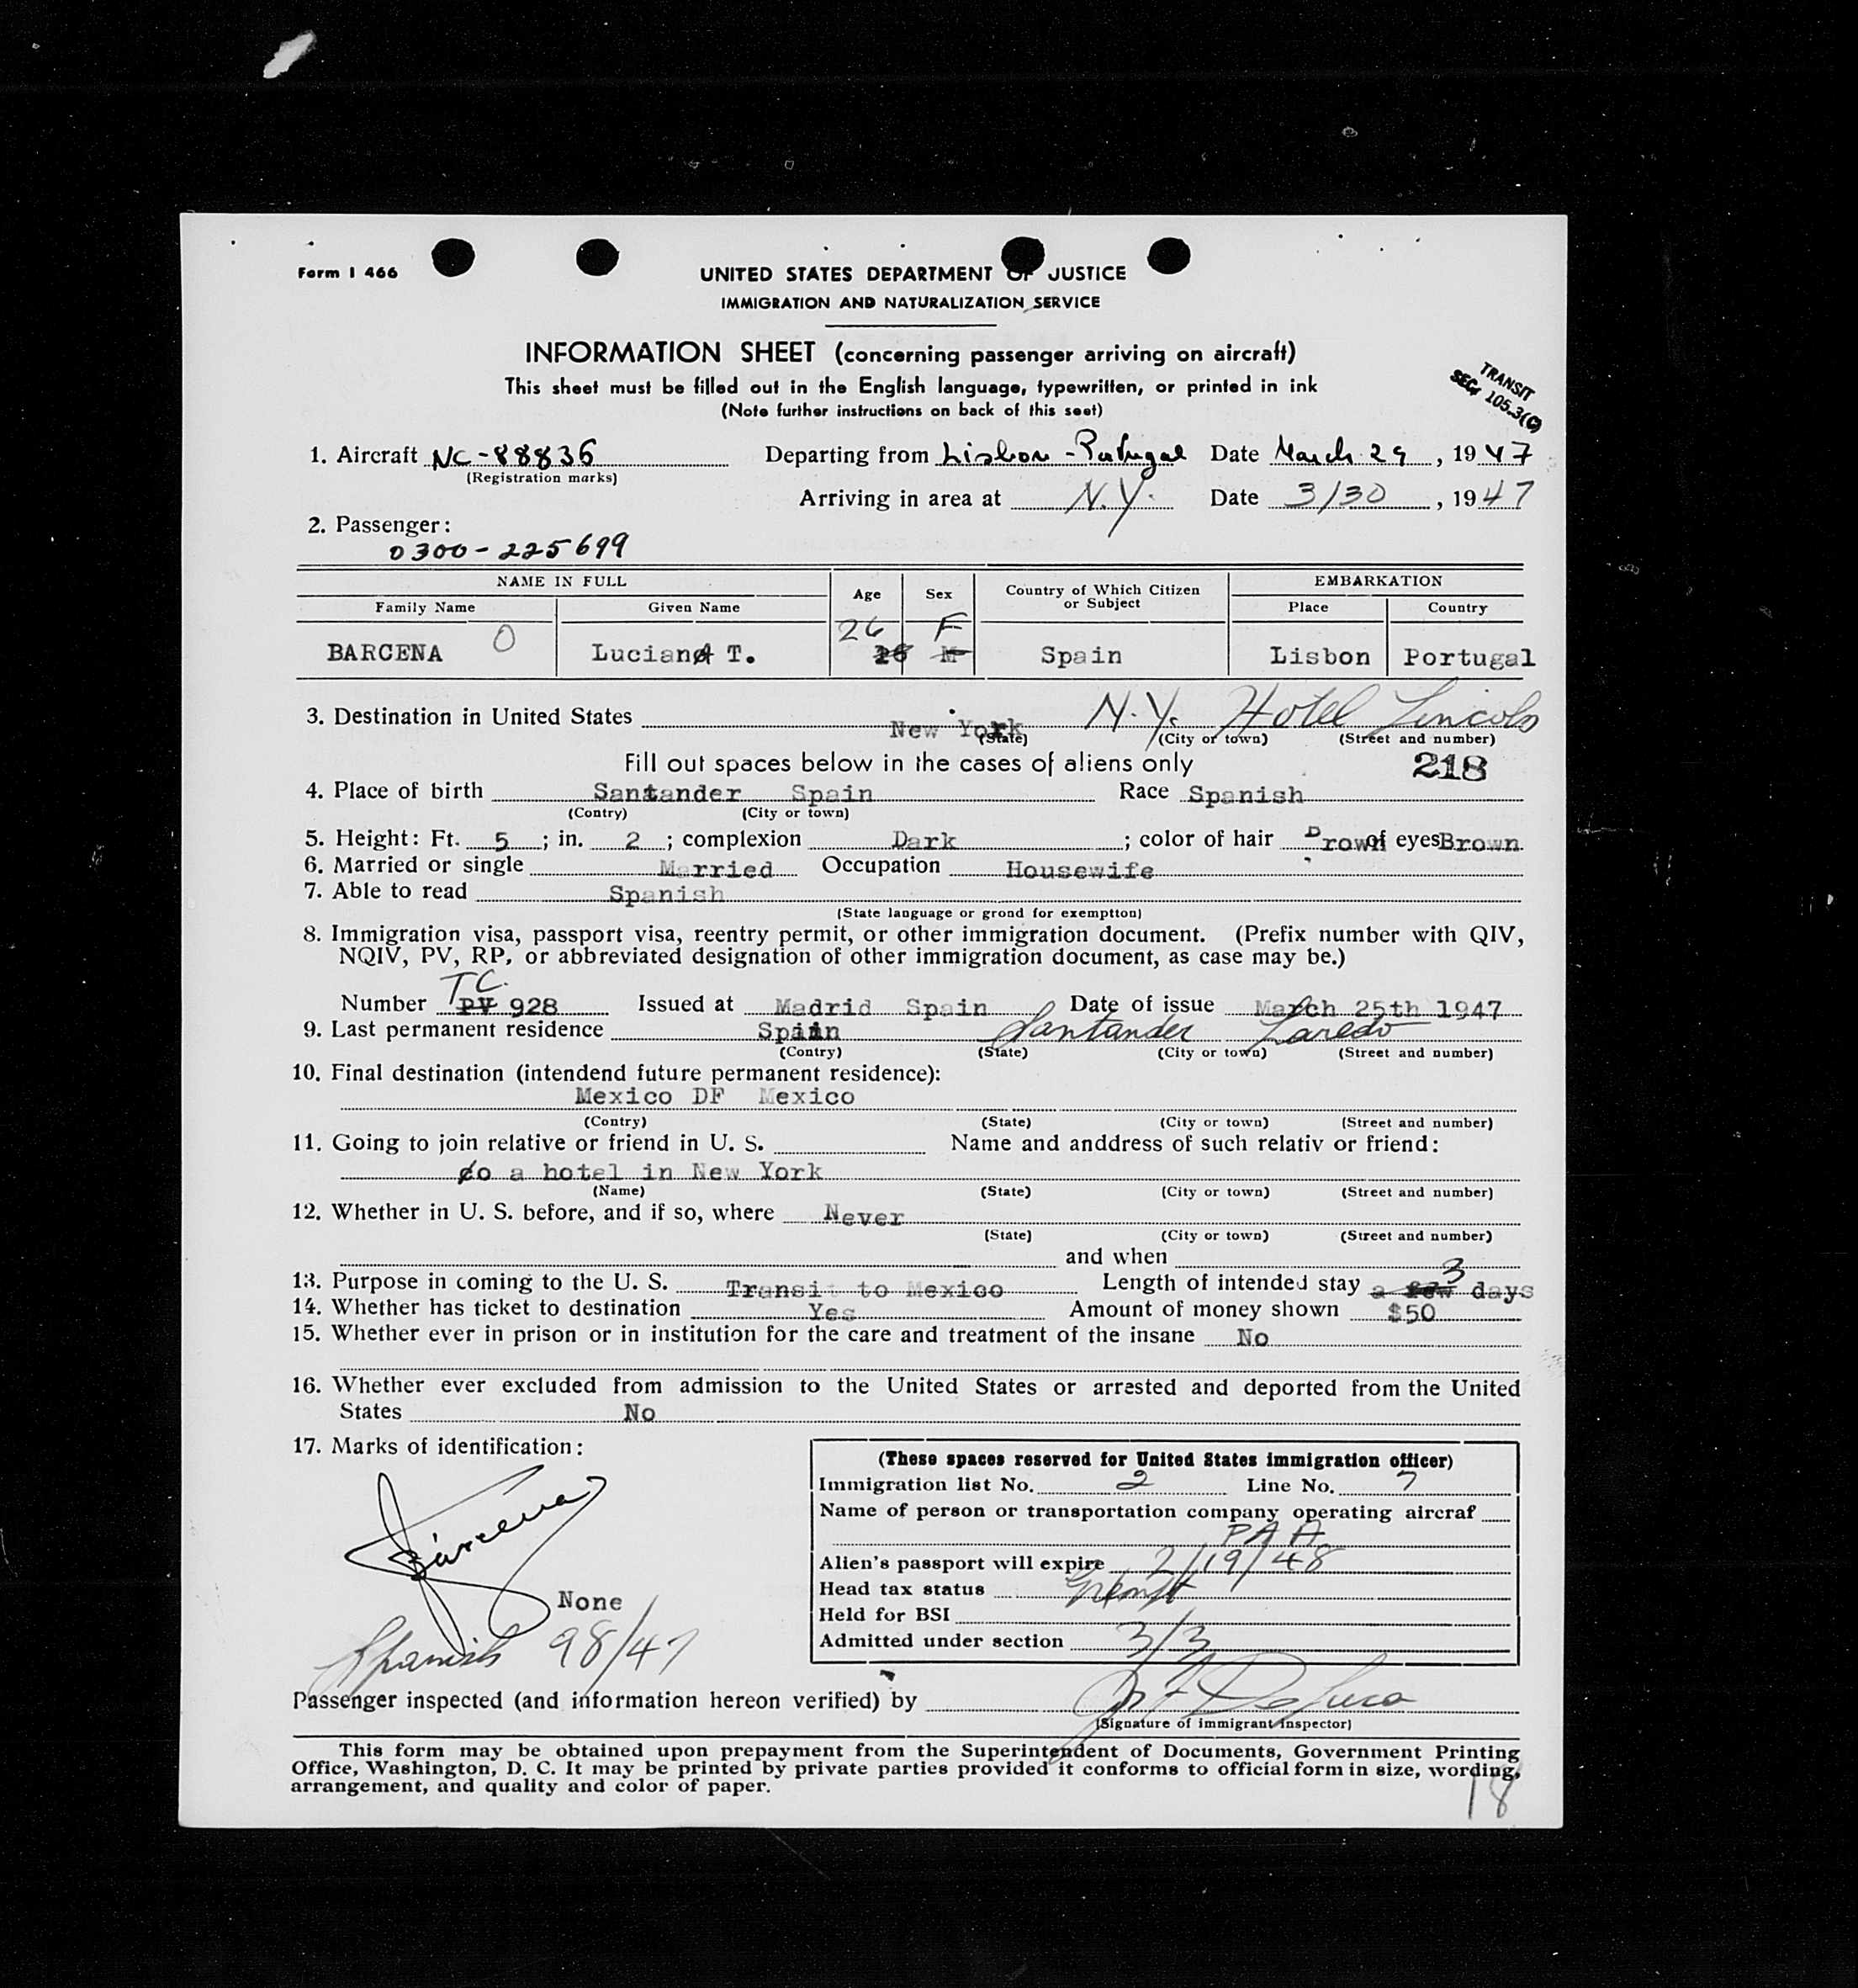 Form I 466
UNITED STATES DEPARTMENT OF JUSTICE
IMMIGRATION AND NATURALIZATION SERVICE
INFORMATION SHEET (concerning passenger arriving on aircraft)
This sheet must be filled out in the English language, typewritten, or printed in ink
(Note further instructions on back of this seet)
TRANSIT
SEC. 105.3(C)
1. Aircraft NC-88836 Departing from Lisbon - Portugal Date March 29, 1947
(Registration marks)
Arriving in area at N.Y. Date 3/30, 1947
2. Passenger:
0300-225699
NAME IN FULL Age Sex Country of Which Citizen or Subject EMBARKATION
Family Name Given Name Place Country
26 F
BARCENA O LucianA T. 16 M Spain Lisbon Portugal
3. Destination in United States New York N.Y. Hotel Lincoln
(State) (City or town) (Street and number)
Fill out spaces below in the cases of aliens only 218
4. Place of birth Santander Spain Race Spanish
(Contry) (City or town)
5. Height: Ft. 5; in. 2; complexion Dark; color of hair Brown of eyes Brown
6. Married or single Married Occupation Housewife
7. Able to read Spanish
(State language or grond for exemptton)
8. Immigration visa, passport visa, reentry permit, or other immigration document. (Prefix number with QIV,
NQIV, PV, RP, or abbreviated designation of other immigration document, as case may be.)
T.C.
Number PV 928 Issued at Madrid Spain Date of issue March 25th 1947
9. Last permanent residence Spain Santander Laredo
(Contry) (State) (City or town) (Street and number)
10. Final destination (intendend future permanent residence):
Mexico DF Mexico
(Contry) (State) (City or town) (Street and number)
11. Going to join relative or friend in U. S. Name and anddress of such relativ or friend:
to a hotel in New York
(Name) (State) (City or town) (Street and number)
12. Whether in U. S. before, and if so, where Never
(State) (City or town) (Street and number)
and when
13. Purpose in coming to the U. S. Transit to Mexico Length of intended stay a few 3 days
14. Whether has ticket to destination Yes Amount of money shown $50
15. Whether ever in prison or in institution for the care and treatment of the insane No
16. Whether ever excluded from admission to the United States or arrested and deported from the United
States No
17. Marks of identification:
Bárcena
None
Spanish 98/47
(These spaces reserved for United States immigration officer)
Immigration list No. 2 Line No. 7
Name of person or transportation company operating aircraf
PAA
Alien's passport will expire 2/19/48
Head tax status Exempt
Held for BSI
Admitted under section 3/3
Passenger inspected (and information hereon verified) by
(Signature of immigrant inspector)
This form may be obtained upon prepayment from the Superintendent of Documents, Government Printing
Office, Washington, D. C. It may be printed by private parties provided it conforms to official form in size, wording,
arrangement, and quality and color of paper.
18